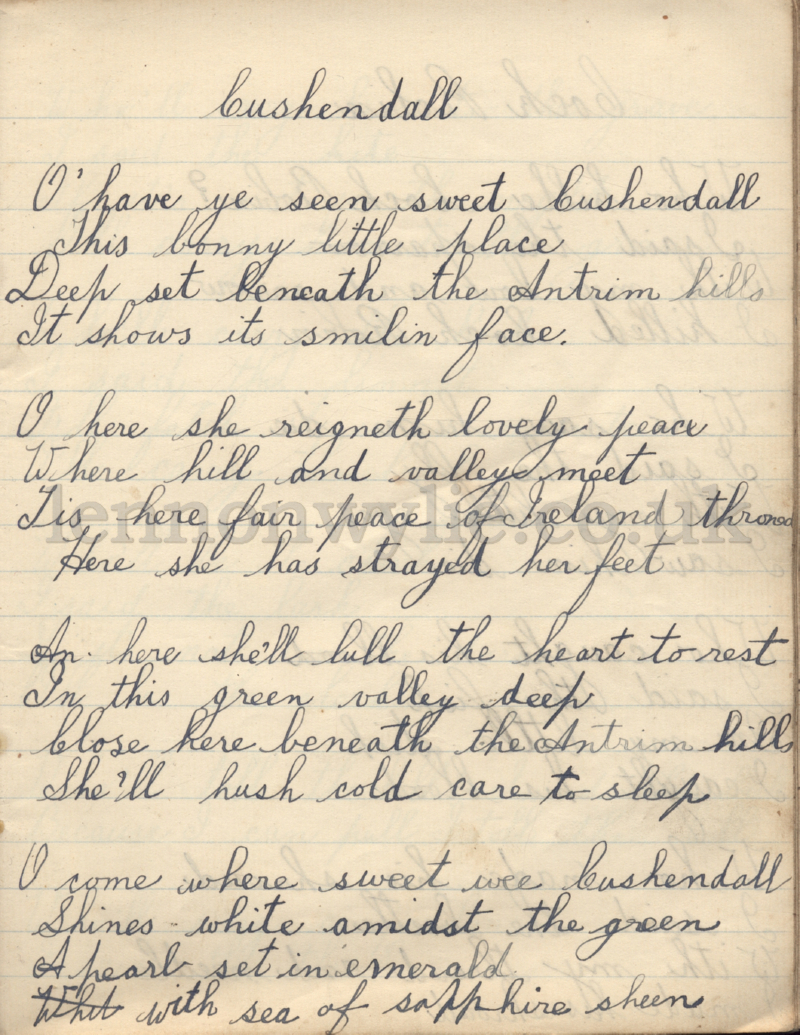 Cushendall
O' have ye seen sweet Cushendall
This bonny little place
Deep set beneath the Antrim hills
It shows its smilin face.
O here she reigneth lovely peace
Where hill and valley meet
Tis here fair peace of Ireland throned
Here she has strayed her feet
An here she'll lull the heart to rest
In this green valley deep
Close here beneath the Antrim hills
She'll hush cold care to sleep
O come where sweet wee Cushendall
Shines white amidst the green
A pearl set in emerald
Whit with sea of sapphire sheen
lennonwylie.co.uk